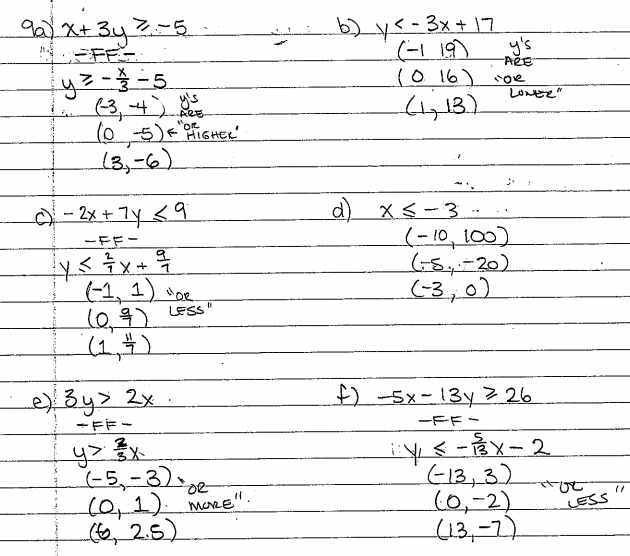 9a) x + 3y ≥ -5
-FF-
y ≥ -x/3 - 5
(-3, -4) y's ARE
(0, -5) ← "OR HIGHER"
(3, -6)
b) y < -3x + 17
(-1, 19) y's ARE
(0, 16) "OR LOWER"
(1, 13)
c) -2x + 7y ≤ 9
-FF-
y ≤ 2/7 x + 9/7
(-1, 1) "OR LESS"
(0, 9/7)
(1, 11/7)
d) x ≤ -3
(-10, 100)
(-5, -20)
(-3, 0)
e) 3y > 2x
-FF-
y > 2/3 x
(-5, -3) "OR MORE"
(0, 1)
(6, 2.5)
f) -5x - 13y ≥ 26
-FF-
y ≤ -5/13 x - 2
(-13, 3)
(0, -2) "OR LESS"
(13, -7)